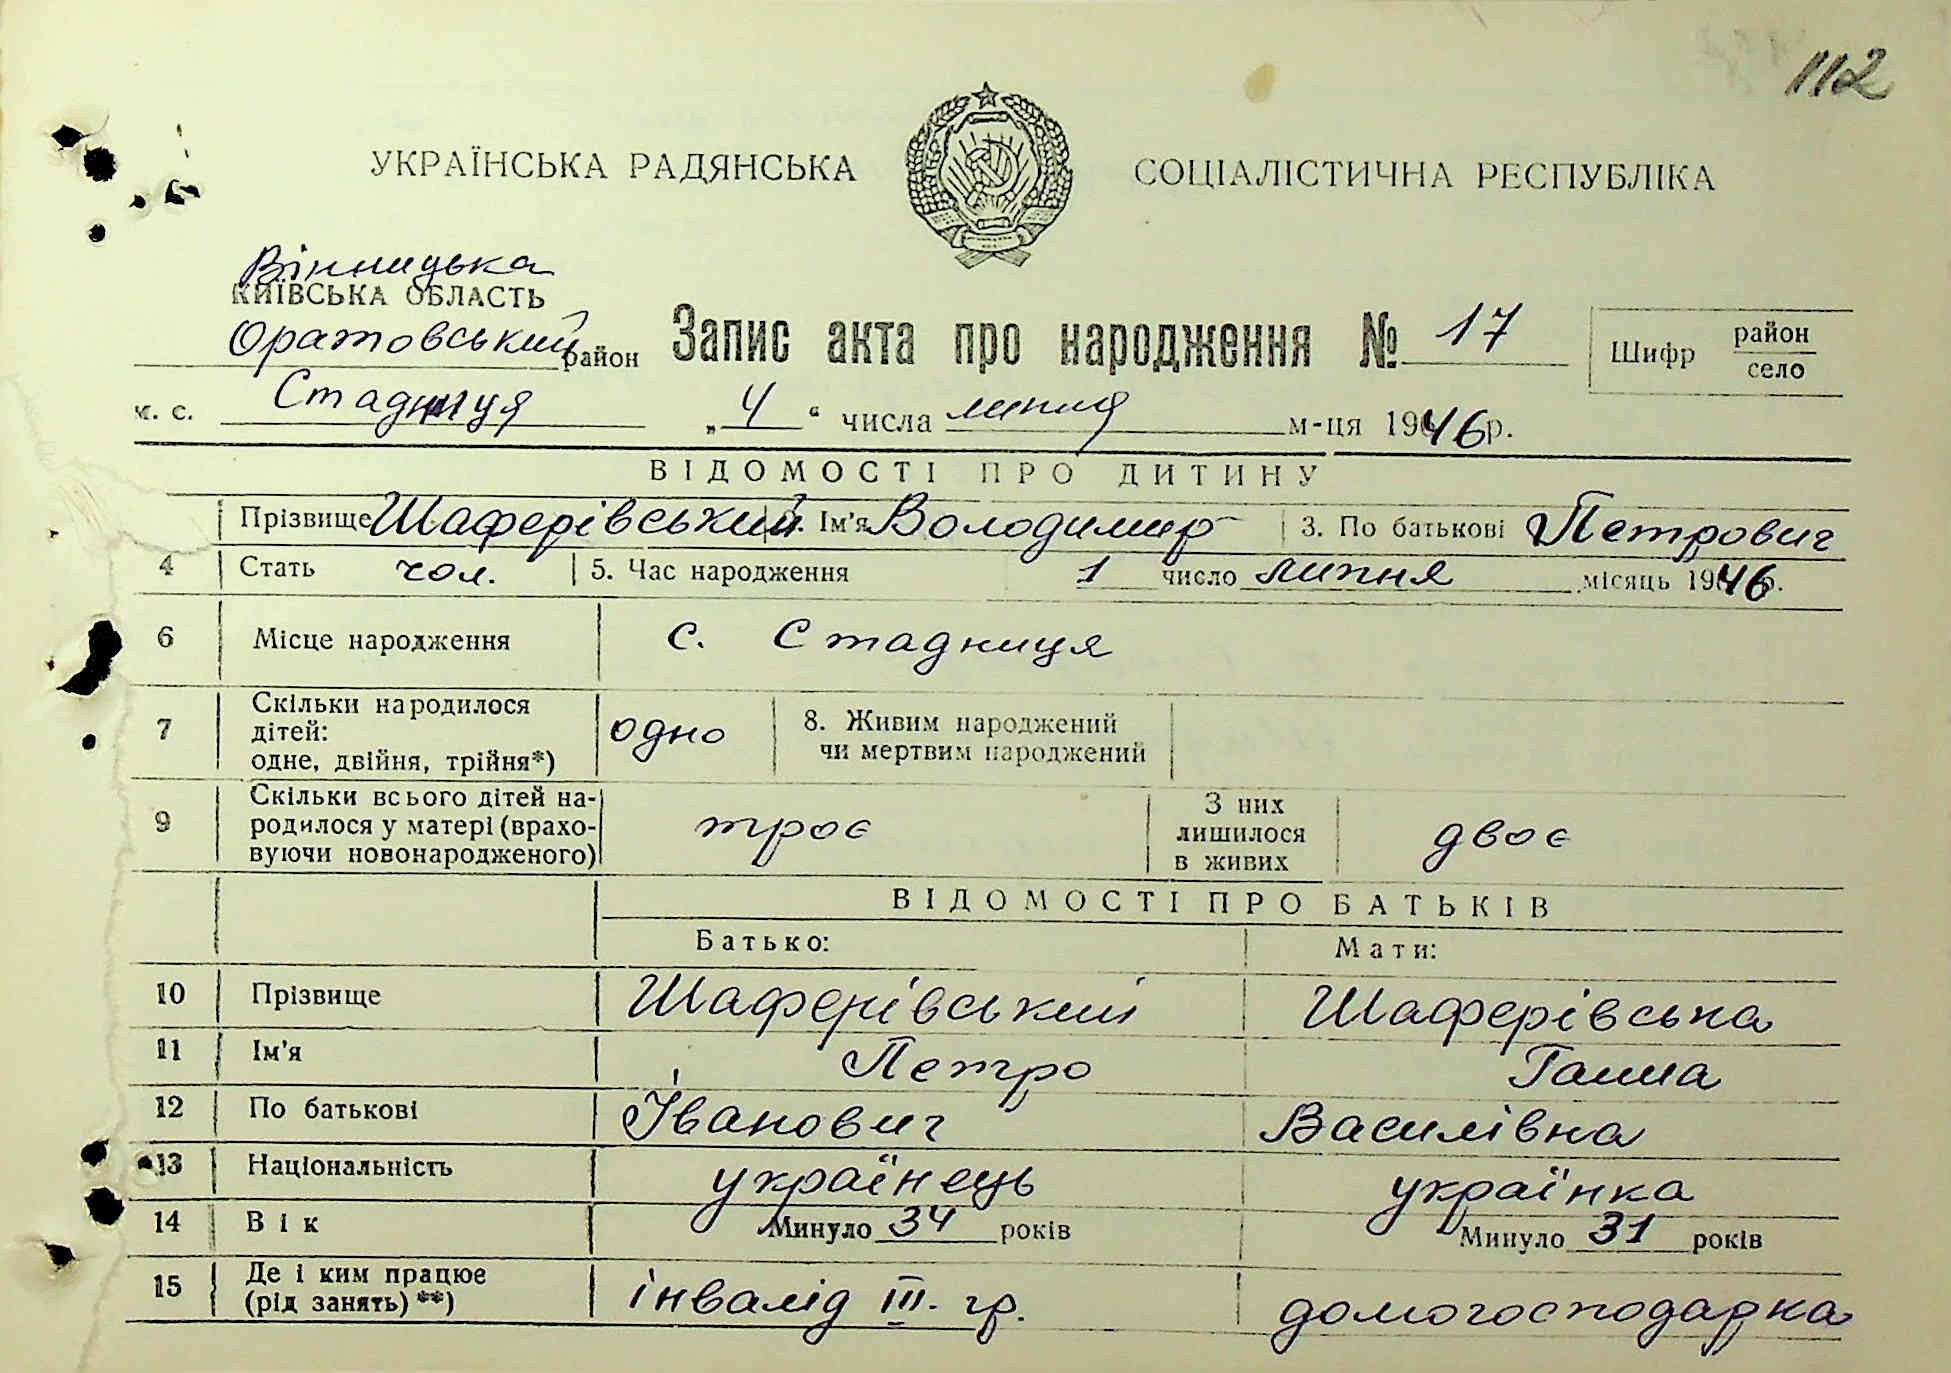 112
УКРАЇНСЬКА РАДЯНСЬКА СОЦІАЛІСТИЧНА РЕСПУБЛІКА
Вінницька
КИЇВСЬКА ОБЛАСТЬ
Оратовський район Запис акта про народження № 17 Шифр район село
м. с. Стадниця „4“ числа липня м-ця 1946 р.
ВІДОМОСТІ ПРО ДИТИНУ
Прізвище Шаферівський 2. Ім'я Володимир 3. По батькові Петрович
4 Стать чол. 5. Час народження 1 число липня місяць 1946 р.
6 Місце народження с. Стадниця
7 Скільки народилося дітей: одне, двійня, трійня*) одно 8. Живим народжений чи мертвим народжений
9 Скільки всього дітей народилося у матері (враховуючи новонародженого) троє З них лишилося в живих двоє
ВІДОМОСТІ ПРО БАТЬКІВ
Батько: Мати:
10 Прізвище Шаферівський Шаферівська
11 Ім'я Петро Ганна
12 По батькові Іванович Василівна
13 Національність українець українка
14 Вік Минуло 34 років Минуло 31 років
15 Де і ким працює (рід занять) **) інвалід III. гр. домогосподарка